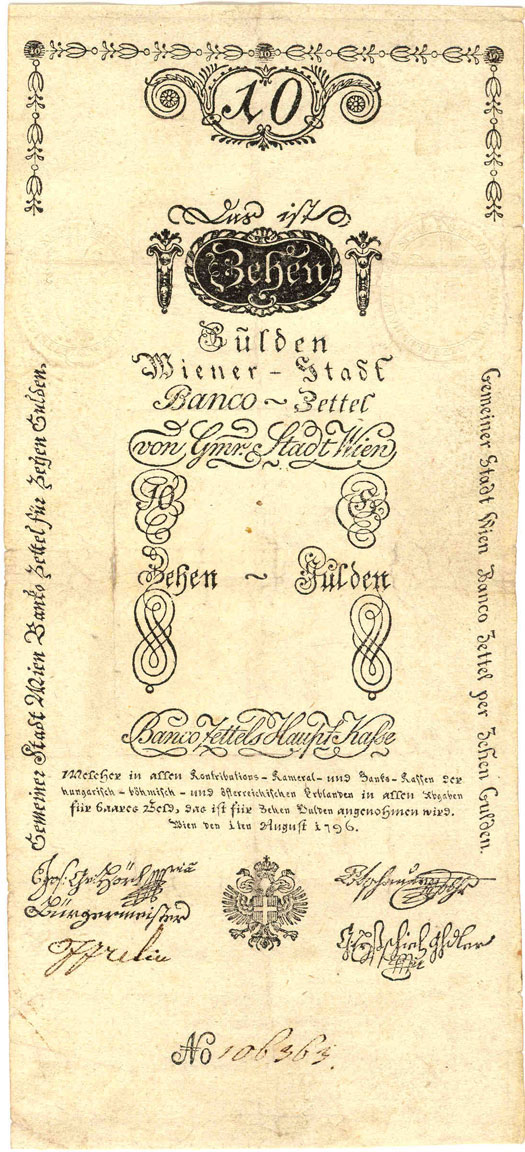 10
Das ist
Zehen
Gülden
Wiener - Stadt
Banco ~ Zettel
von Gmr. Stadt Wien
10 F
Zehen ~ Gulden
Banco Zettels Haupt Kasse
Welcher in allen Kontributions - Kameral - und Banko - Kassen der
hungarisch - böhmisch - und österreichischen Erblanden in allen Abgaben
für baares Geld, das ist für Zehen Gulden angenohmen wird.
Wien den 1ten August 1796.
Gemeiner Stadt Wien Banko Zettel für Zehen Gulden.
Gemeiner Stadt Wien Banco Zettel per Zehen Gulden.
Bürgermeister
No 106363.